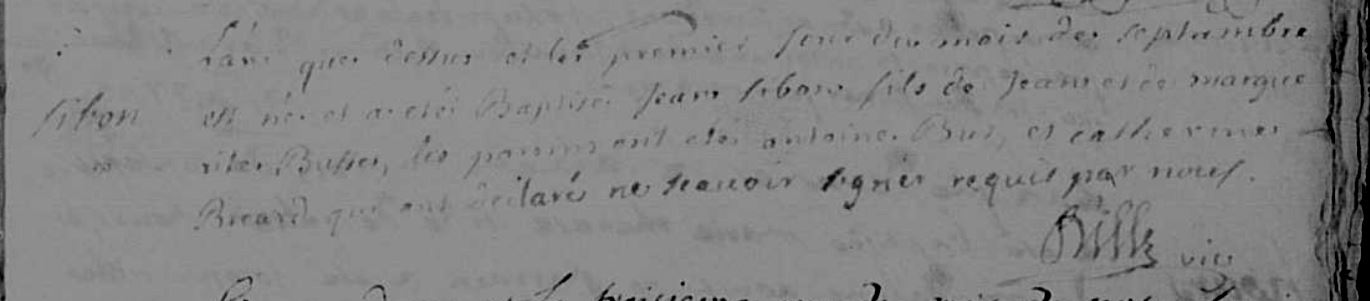 L'an que dessus et les premier jour du mois de septambre
sibon
est néé et a etéé Baptiséé Jean sibon fils de Jean et de margue
rite Busse, les parains ont etéé antoine Bus, et catherine
Ricard qui ont déclaré ne scauoir signer requis par nous.
Bille vic